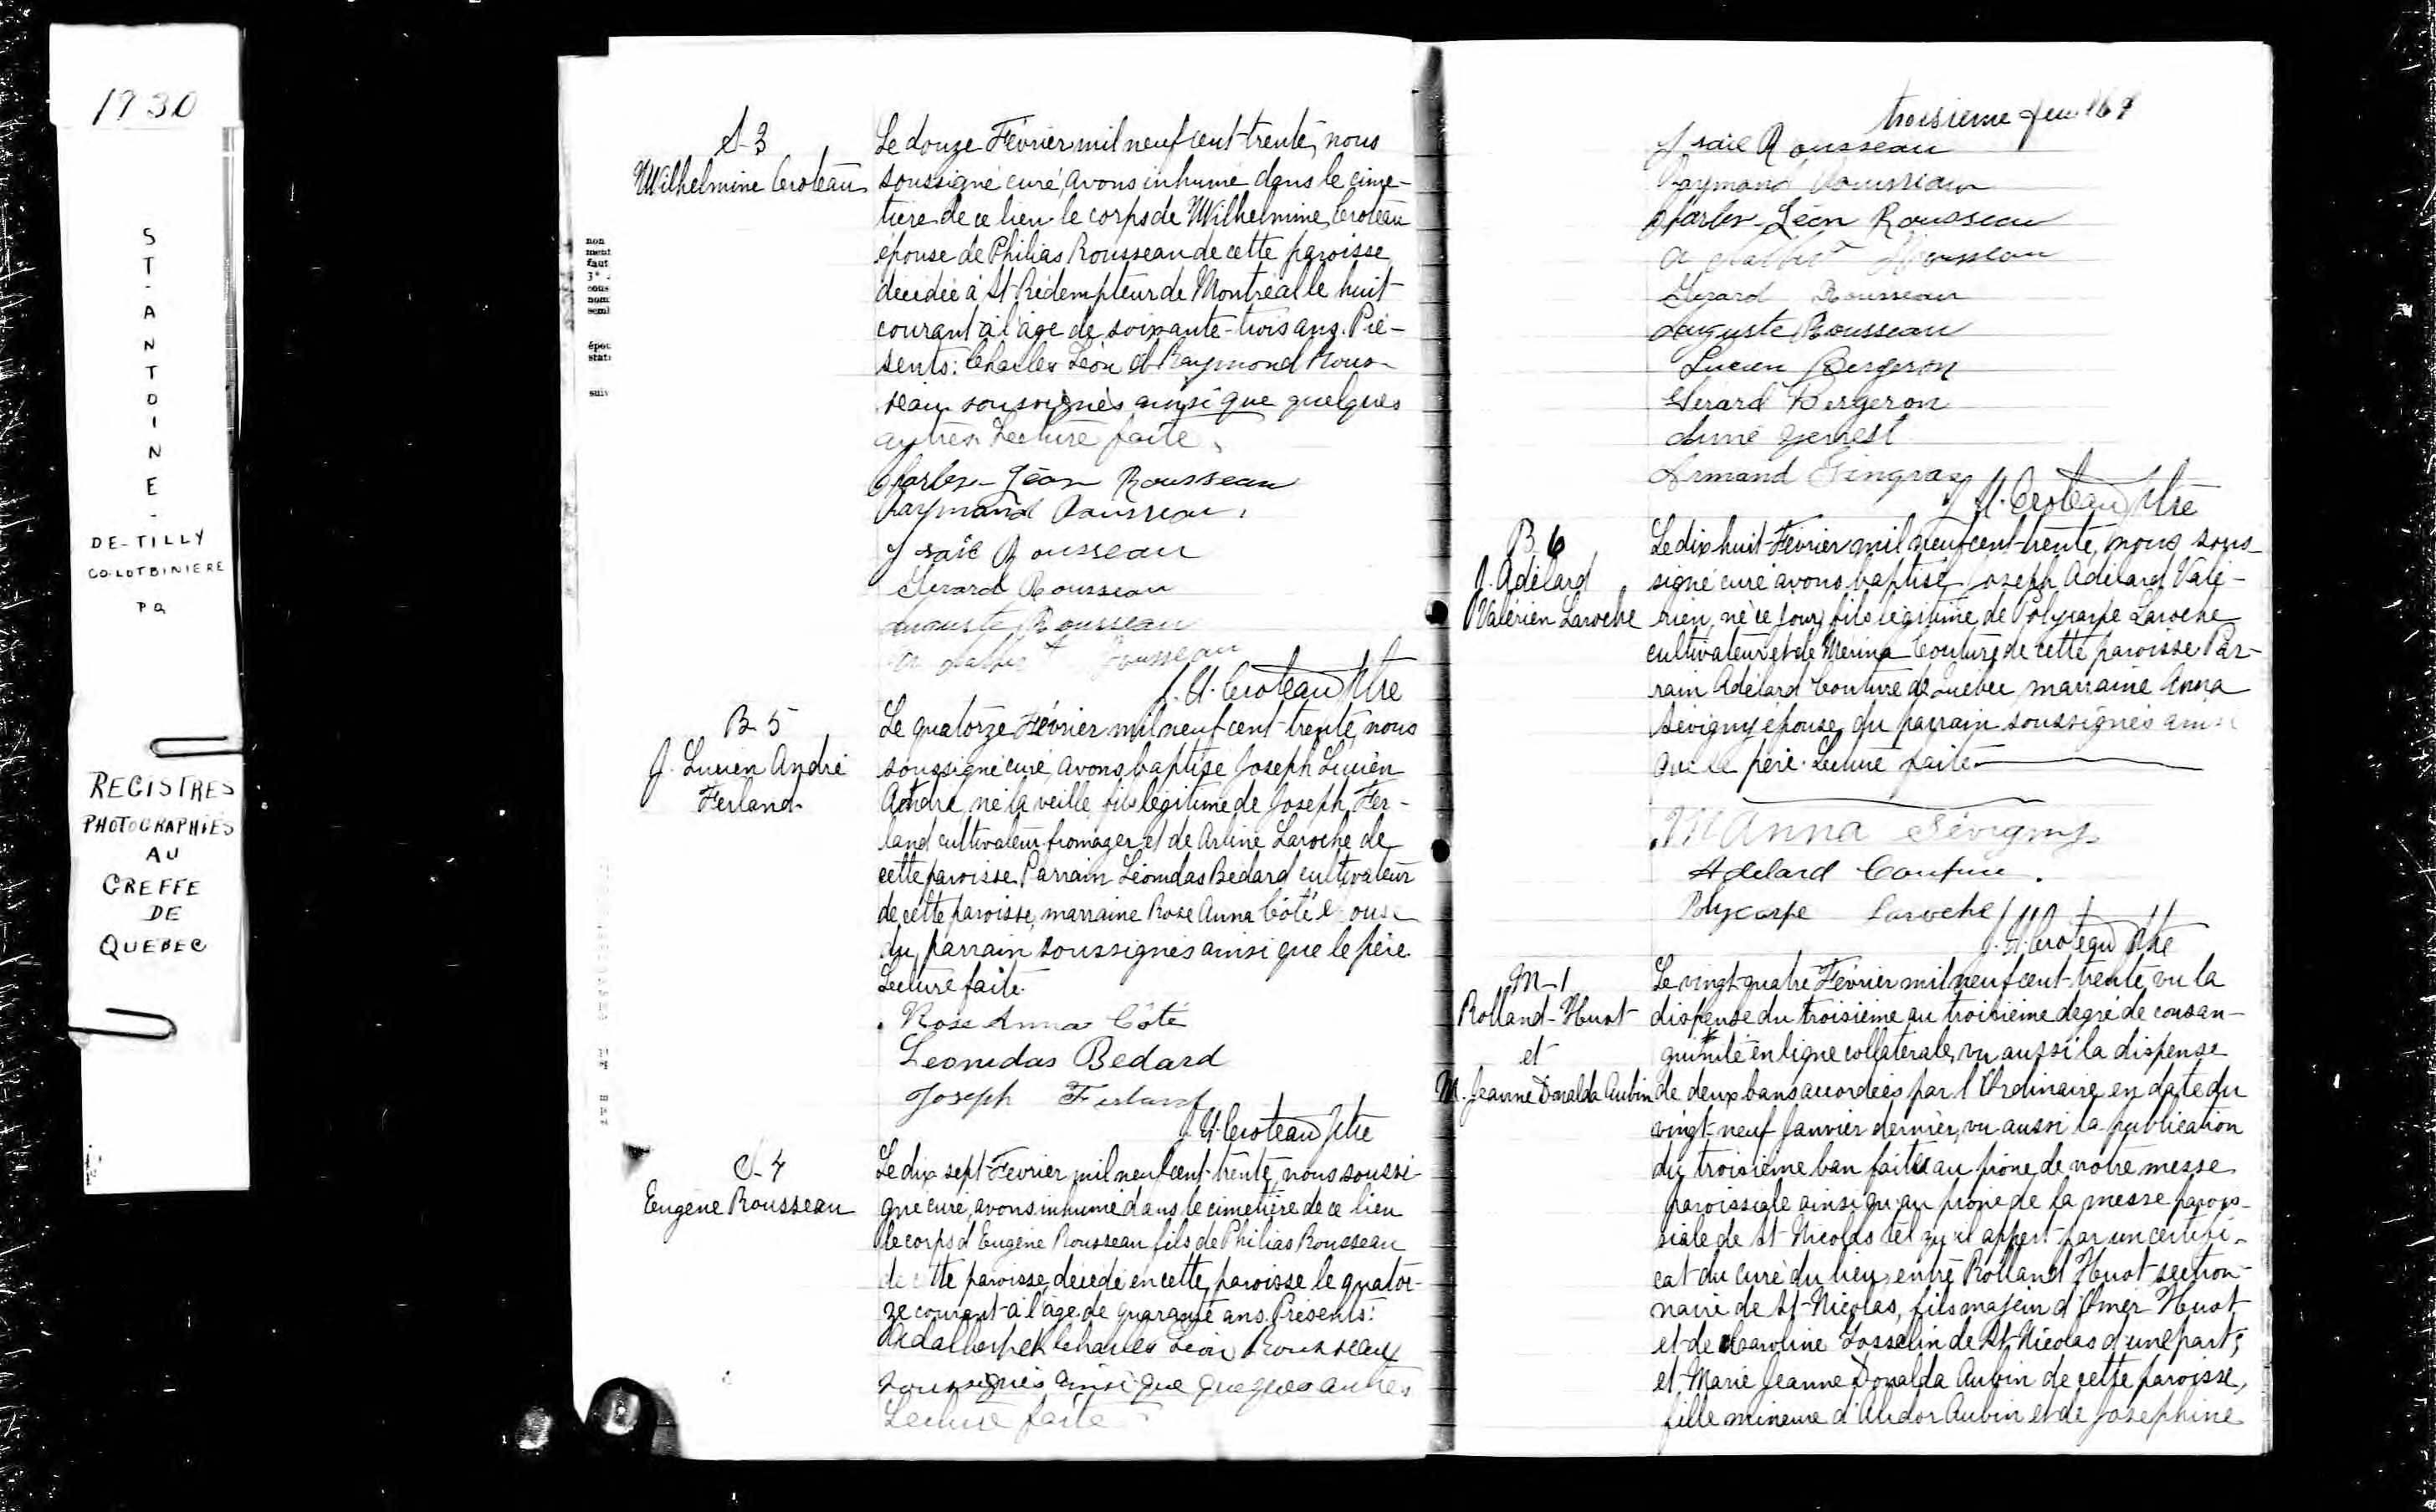 1930
ST-ANTOINE-
DE-TILLY
CO-LOTBINIERE
PQ
REGISTRES
PHOTOGRAPHIÉS
AU
GREFFE
DE
QUEBEC
non
ment
faut
3°
cons
nom
semb
épou
stat
suiv
S-3
Wilhelmine Croteau
Le douze Février mil neuf cent-trente, nous
soussigné curé, avons inhumé dans le cime-
tière de ce lieu le corps de Wilhelmine Croteau
épouse de Philias Rousseau de cette paroisse
décédée à St Rédempteur de Montréal le huit
courant à l'âge de soixante-trois ans. Pré-
sents: Charles Léon et Raymond Rous-
seau soussignés ainsi que quelques
autres. Lecture faite.
Charles-Léon Rousseau
Raymond Rousseau.
Isaïe Rousseau
Gérard Rousseau
Auguste Rousseau
Rousseau
J. H. Croteau Ptre
B-5
J. Lucien André
Ferland
Le quatorze Février mil neuf cent-trente, nous
soussigné curé, avons baptisé Joseph Lucien
André, né la veille, fils légitime de Joseph Fer-
land cultivateur-fromager et de Arline Laroche de
cette paroisse. Parrain Léonidas Bédard cultivateur
de cette paroisse, marraine Rose Anna Côté épouse
du parrain soussignés ainsi que le père.
Lecture faite.
Rose Anna Côté
Leonidas Bedard
Joseph Ferland
J. H. Croteau Ptre
S-4
Eugène Rousseau
Le dix sept Février mil neuf cent-trente, nous soussi-
gné curé, avons inhumé dans le cimetière de ce lieu
le corps d'Eugène Rousseau fils de Philias Rousseau
de cette paroisse, décédé en cette paroisse le quator-
ze courant à l'âge de quarante ans. Présents:
Adalbert et Charles Léon Rousseau
soussignés ainsi que quelques autres
Lecture faite
troisième feuillet
Isaïe Rousseau
Raymond Rousseau
Charles-Léon Rousseau
Rousseau
Gérard Rousseau
Auguste Rousseau
Lucien Bergeron
Gérard Bergeron
Armand Gingras
J. H. Croteau Ptre
B 6
J. Adélard
Valérien Laroche
Le dix huit Février mil neuf cent-trente, nous sous-
signé curé avons baptisé Joseph Adélard Valé-
rien, né ce jour, fils légitime de Polycarpe Laroche
cultivateur et de Mérina Couture de cette paroisse. Par-
rain Adélard Couture de Québec, marraine Anna
Sévigny épouse du parrain soussignés ainsi
que le père. Lecture faite.
M Anna Sévigny
Adelard Couture.
Polycarpe Laroche
J. H. Croteau Ptre
M-1
Rolland-Huot
et
M. Jeanne Donalda Aubin
Le vingt-quatre Février mil neuf cent-trente, vu la
dispense du troisième au troisième degré de consan-
guinité en ligne collatérale, vu aussi la dispense
de deux bans accordées par l'Ordinaire en date du
vingt-neuf Janvier dernier, vu aussi la publication
du troisième ban faite au prône de notre messe
paroissiale ainsi qu'au prône de la messe parois-
siale de St-Nicolas tel qu'il appert par un certifi-
cat du curé du lieu, entre Rolland Huot section-
naire de St-Nicolas, fils majeur d'Omer Huot
et de Caroline Gosselin de St-Nicolas d'une part;
et Marie Jeanne Donalda Aubin de cette paroisse,
fille mineure d'Audor Aubin et de Joséphine